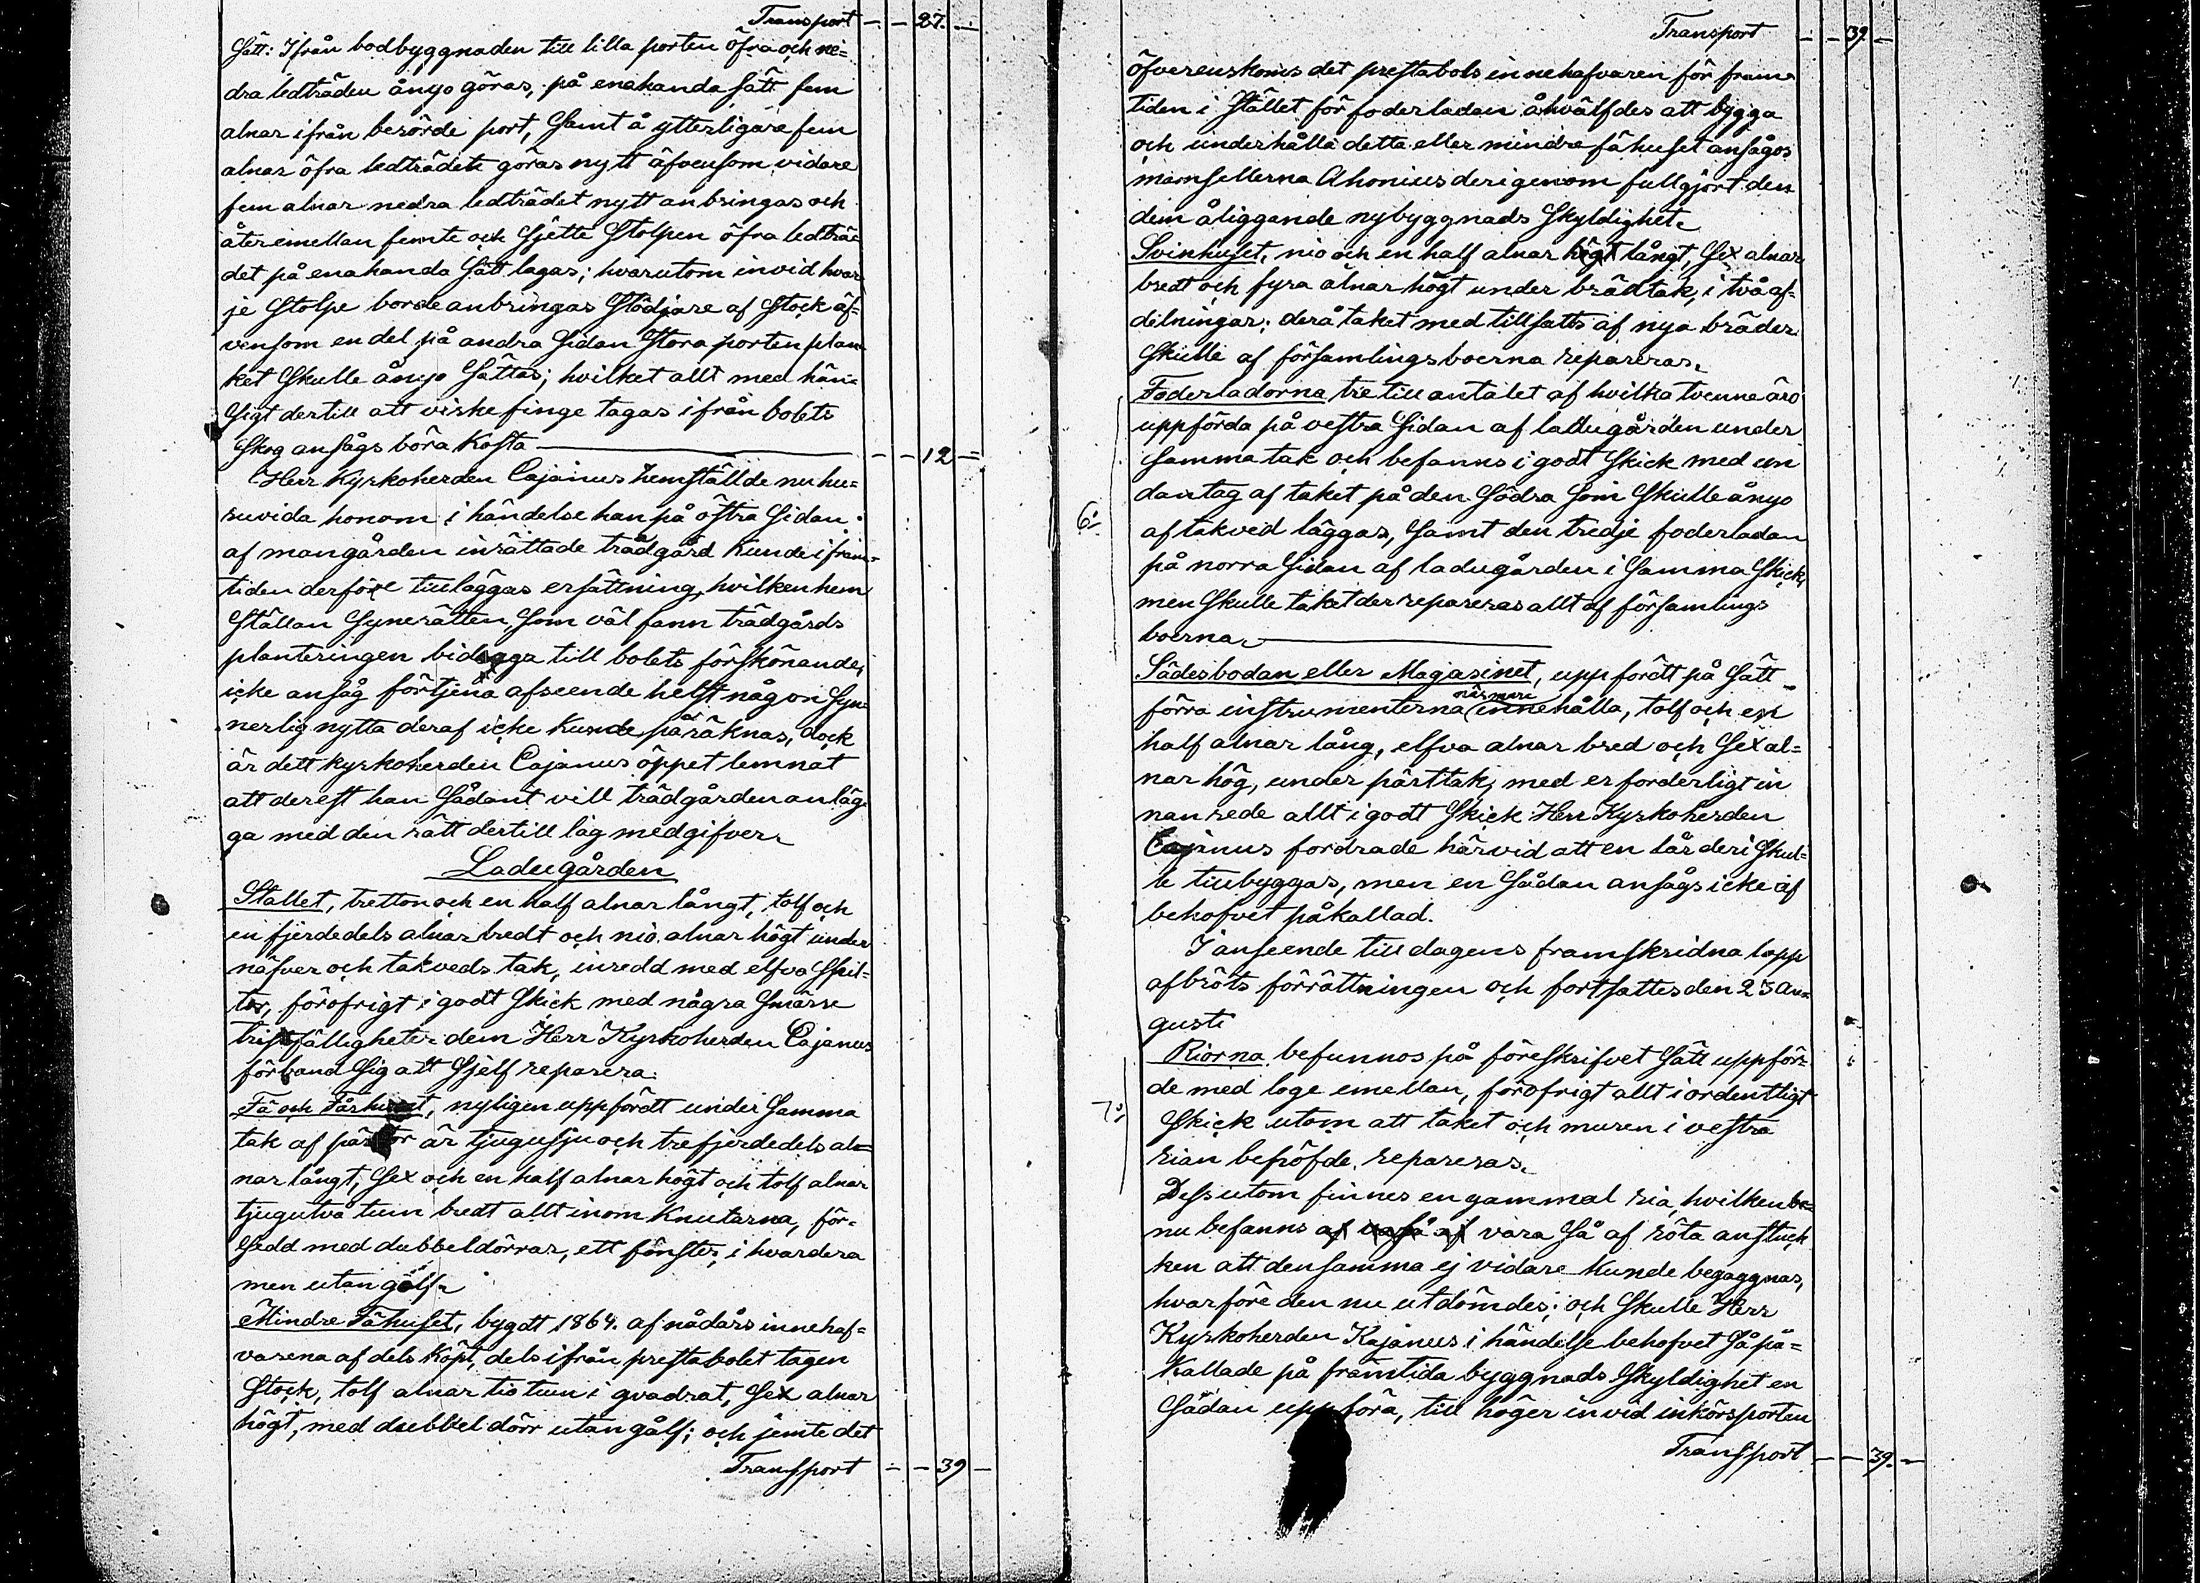 Transport - - 27. -
sätt: Ifrån bodbyggnaden till lilla porten öfra och ne=
dra ledträden ånyo göras, på enahanda sätt fem
alnar ifrån berörde port, samt å ytterligare fem
alnar öfra ledträdets göras nytt äfvensom vidare
fem alnar nedra ledträdet nytt anbringas och
åter emellan femte och sjette stolpen öfra ledträ=
det på enahanda sätt lagas; hvarutom invid hvar
je stolpe borde anbringas stödjare af stock äf=
vensom en del på andra sidan stora porten plan
ket skulle ånyo sättas; hvilket allt med hän=
sigt dertill att virke finge tagas ifrån bolets
skog ansågs böra kosta - - 12 -
Herr Kyrkoherden Cajanus hemställde nu hu=
ruvida honom i händelse han på östra sidan
af mangården inrättade trädgård kunde i fram=
tiden derföre tilläggas ersättning, hvilken hem
ställan Synerätten, som väl fann trädgårds
planteringen bidraga till bolets förskönande,
icke ansåg förtjena afseende helst någon syn=
nerlig nytta deraf icke kunde påräknas, dock
är dett kyrkoherden Cajanus öppet lemnat
att derest han sådant vill trädgården anläg
ga med den rätt dertill lag medgifver.
Ladugården
Stallet, tretton och en half alnar långt, tolf och
en fjerdedels alnar bredt och nio alnar högt under
näfver och takveds tak, inredd med elfva spil=
tor, föröfrigt i godt skick med några smärre
bristfälligheter dem Herr Kyrkoherden Cajanus
förband sig att sjelf reparera.
Fä och Fårhuset, nyligen uppfördt under samma
tak af pärtor är tjugusju och trefjerdedels al=
nar långt, sex och en half alnar högt och tolf alnar
tjugutvå tum bredt allt inom knutarna, för=
sedd med dubbeldörrar, ett fönster i hvardera
men utan golf.
Mindre Fähuset, bygdt 1864. af nådårs innehaf=
varena af dels köpt, dels ifrån prestabolet tagen
stock, tolf alnar tio tum i qvadrat, sex alnar
högt, med dubbel dörr utan golf; och jemte det
Transport - - 39 -
Transport - - 39. -
öfverenskoms det prestabols innehafvaren för fram=
tiden i stället för foderladan åhvälfdes att bygga
och underhålla detta eller mindre fähuset ansågos
mamsellerna Ahonius derigenom fullgjort den
dem åliggande nybyggnads skyldighet.
Svinhuset, nio och en half alnar högt långt, sex alnar
bredt och fyra alnar högt under brädtak, i två af=
delningar; derå taket med tillsatts af nya bräder
skulle af församlingsboerna repareras.
Foderladorna tre till antalet af hvilka tvenne äro
uppförda på vestra sidan af ladugården under
samma tak och befanns i godt skick med un
dantag af taket på den södra som skulle ånyo
6:
af takved läggas, samt den tredje foderladan
på norra sidan af ladugården i samma skick,
men skulle taket der repareras allt af församlings
boerna.
Sädesbodan eller Magasinet, uppfördt på sätt
förra instrumenterna närmare innehålla, tolf och en
half alnar lång, elfva alnar bred och sex al=
nar hög, under pärttak, med erforderligt in
nanrede allt i godt skick Herr Kyrkoherden
Cajanus fordrade härvid att en lår deri skul=
le tillbyggas, men en sådan ansågs icke af
behofvet påkallad.
I anseende till dagens framskridna lopp
afbröts förrättningen och fortsattes den 23 Au=
gusti
Riorna befunnos på föreskrifvet sätt uppför=
de med loge emellan, föröfrigt allt i ordentligt
7:
skick utom att taket och muren i vestra
rian behöfde repareras.
Dessutom finnes en gammal ria, hvilken be=
nu befanns vara så af röta anstuck
ken att densamma ej vidare kunde begaggnas,
hvarföre den nu utdömdes; och skulle Herr
Kyrkoherden Kajanus i händelse behofvet så på=
kallade på framtida byggnads skyldighet en
sådan uppföra, till höger invid inkörsporten
Transport - - 39. -